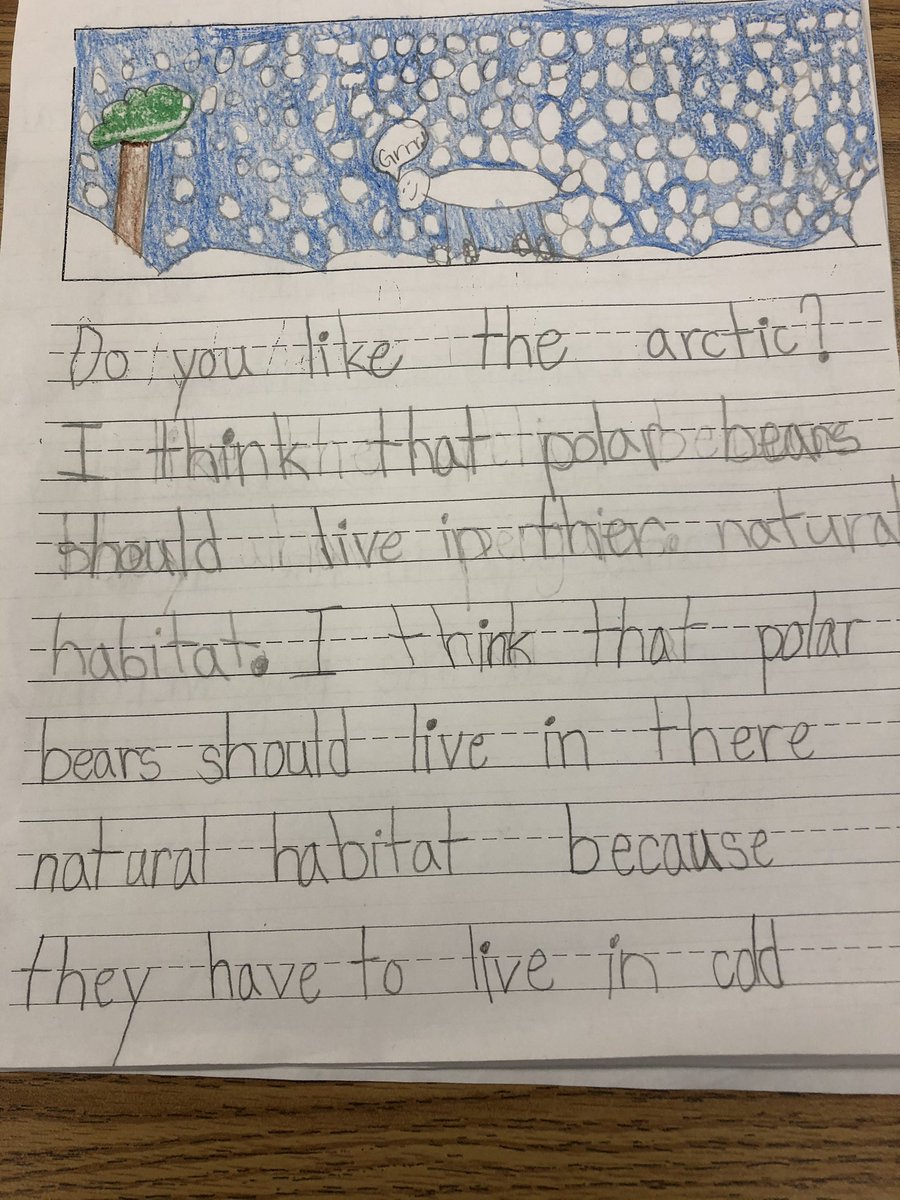 Grrr
Do you like the arctic?
I think that polar bears
should live in thier natural
habitat. I think that polar
bears should live in there
natural habitat because
they have to live in cold